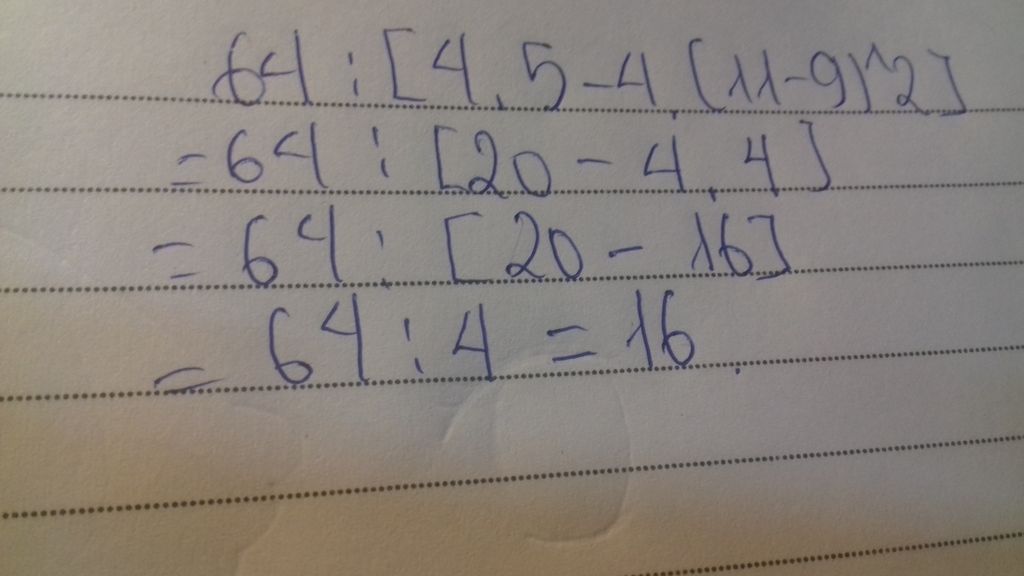 64 : [4.5-4.(11-9)^2]
= 64 : [20 - 4.4]
= 64 : [20 - 16]
= 64 : 4 = 16